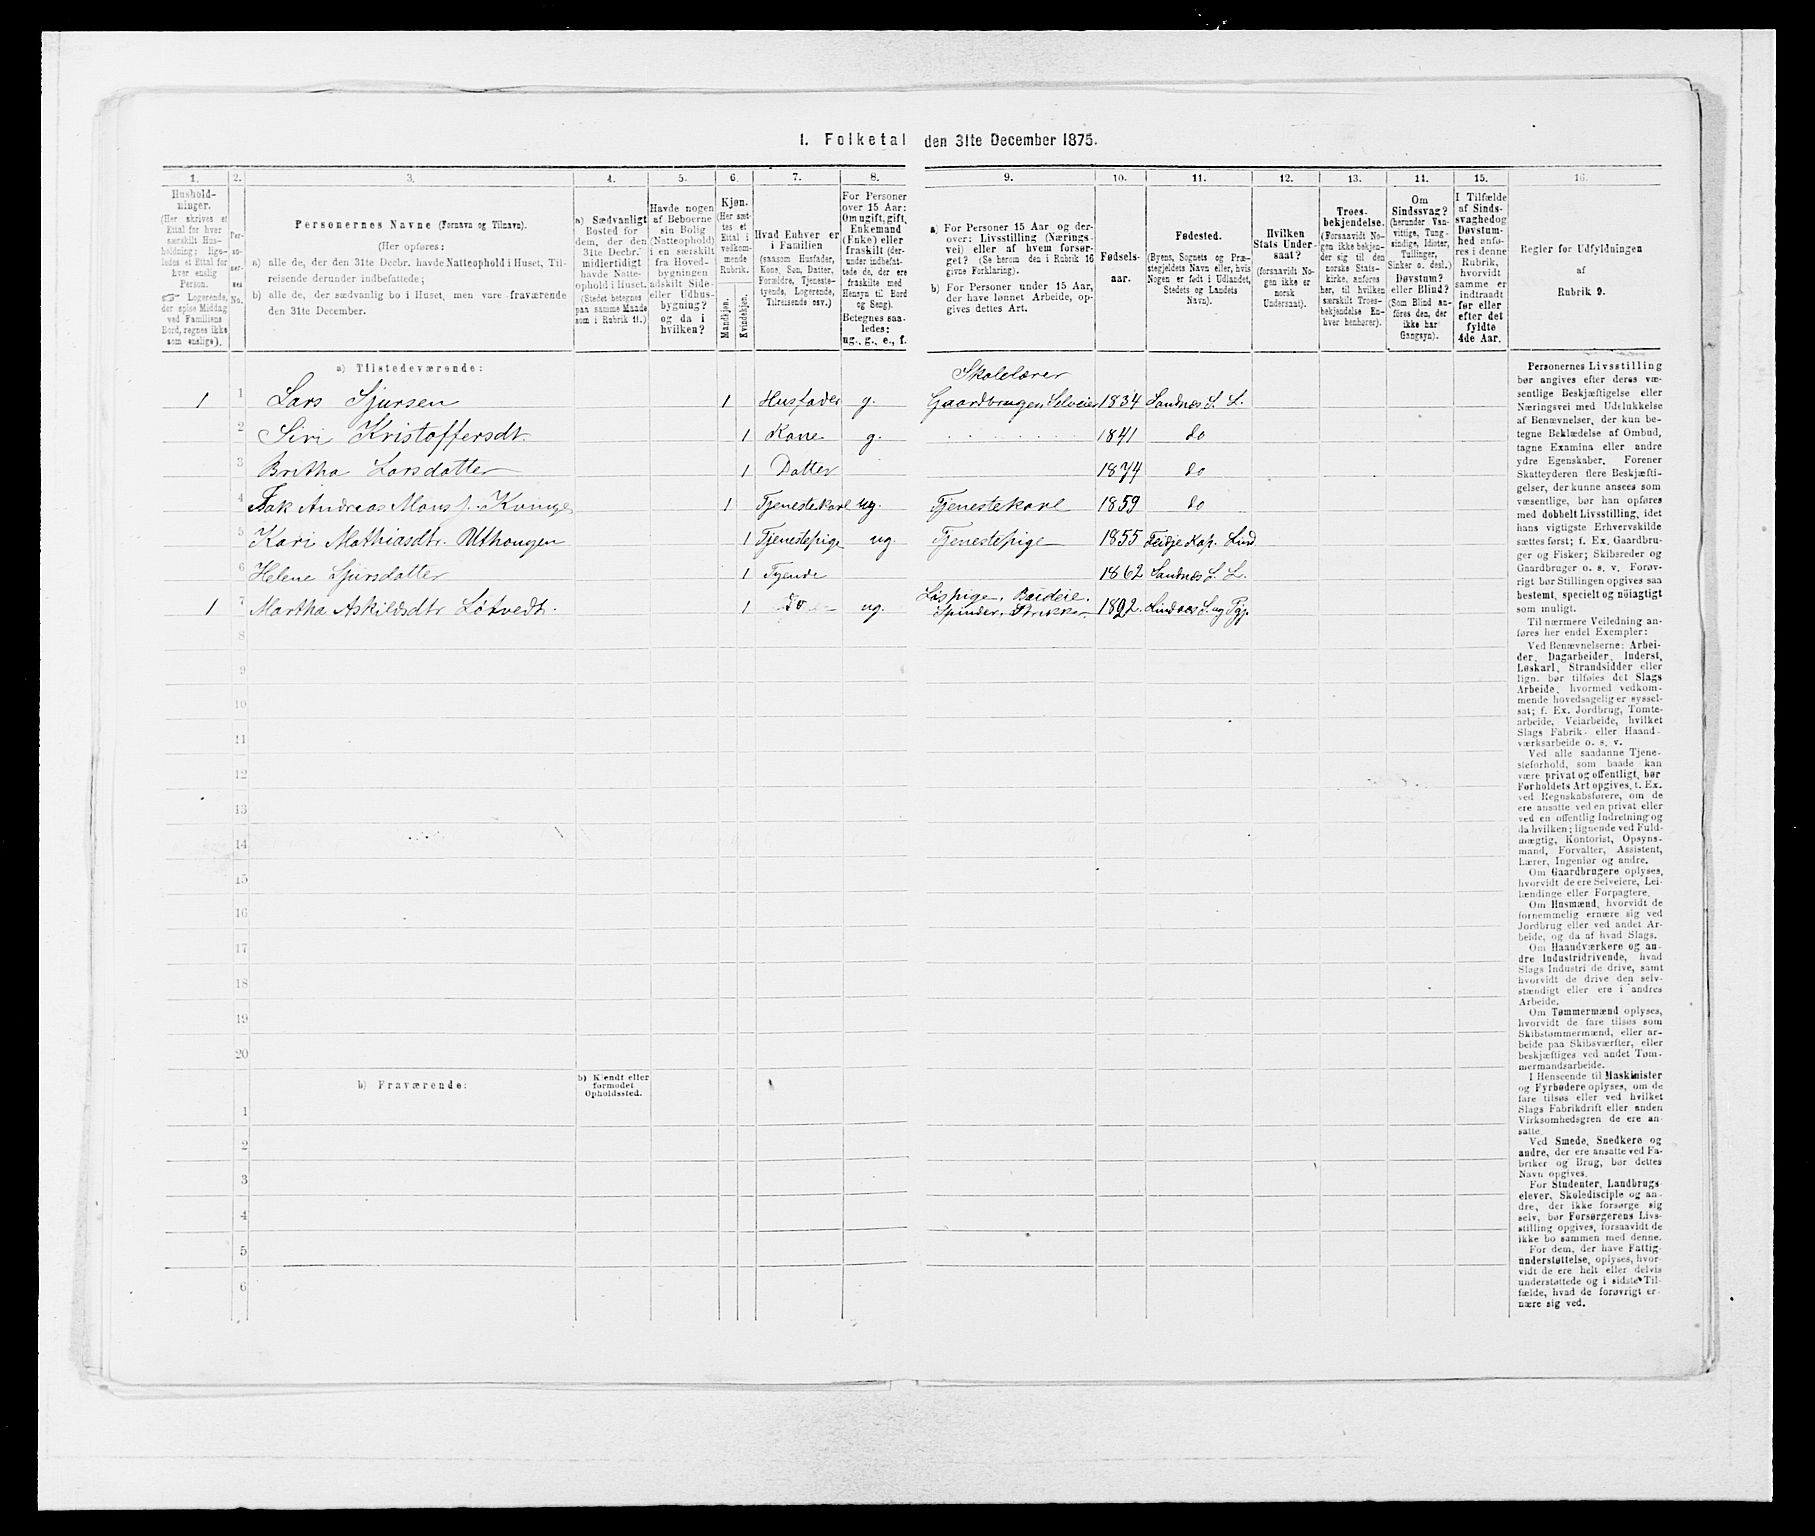 1. Folketal den 31te December 1875.
1. 2. 3. 4. 5. 6. 7. 8. 9. 10. 11. 12. 13. 14. 15. 16.
Hushold-
ninger.
(Her skrives et
Ettal for hver
særskilt Hus-
holdning; lige-
ledes et Ettal for
hver enslig
Person.
☞ Logerende,
der spise Middag
ved Familiens
Bord, regnes ikke
som enslige).
Per-
so-
ner-
nes
No.
Personernes Navne (Fornavn og Tilnavn).
(Her opføres:
a) alle de, der den 31te Decbr. havde Natteophold i Huset, Til-
reisende derunder indbefattede;
b) alle de, der sædvanlig bo i Huset, men vare fraværende
den 31te December.
a) Sædvanligt
Bosted for
dem, der den
31te Decbr.
midlertidigt
havde Natte-
ophold i Huset.
(Stedet betegnes
paa samme Maade
som i Rubrik 11.)
Havde nogen
af Beboerne
sin Bolig
(Natteophold)
i en særskilt
fra Hoved-
bygningen
adskilt Side-
eller Udhus-
bygning?
og da i
hvilken?
Kjøn.
(Her sæt-
tes et
Ettal i
vedkom-
mende
Rubrik.
Mandkjøn.
Kvindekjøn.
Hvad Enhver er
i Familien
(saasom Husfader,
Kone, Søn, Datter,
Forældre, Tjeneste-
tyende, Logerende,
Tilreisende osv.)
For Personer
over 15 Aar:
Om ugift, gift,
Enkemand
(Enke) eller
fraskilt (der-
under indbefat-
tede de, der ere
fraskilte med
Hensyn til Bord
og Seng).
Betegnes saa-
ledes:
ug., g., e., f.
a) For Personer 15 Aar og der-
over: Livsstilling (Nærings-
vei) eller af hvem forsør-
get? (Se herom den i Rubrik 16
givne Forklaring).
b) For Personer under 15 Aar,
der have lønnet Arbeide, op-
gives dettes Art.
Fødsels-
aar.
Fødested.
(Byens, Sognets og Præ-
stegjeldets Navn eller, hvis
Nogen er født i Udlandet,
Stedets og Landets
Navn).
Hvilken
Stats Under-
saat?
(forsaavidt No-
gen ikke er
norsk
Undersaat).
Troes-
bekjendelse.
(Forsaavidt No-
gen ikke bekjen-
der sig til den
norske Stats-
kirke, anføres
her, til hvilken
særskilt Troes-
bekjendelse En-
hver henhører).
Om
Sindssvag?
(herunder Van-
vittige, Tung-
sindige, Idioter,
Tullinger,
Sinker o. desl.)
Døvstum?
eller Blind?
(Som Blind an-
føres den, der
ikke har
Gangsyn).
I Tilfælde
af Sinds-
svaghed og
Døvstum-
hed anfø-
res i denne
Rubrik,
hvorvidt
samme er
indtraadt
før eller
efter det
fyldte
4de Aar.
Regler for Udfyldningen
af
Rubrik 9.
a) Tilstedeværende:
Skolelærer
1 1 Lars Sjursen 1 Husfader g. Gaardbruger, Selveier 1834 Sandnæs S. L.
2 Siri Kristoffersdt. 1 Kone g. 1841 do
3 Britha Larsdatter 1 Datter 1874 do
4 Isak Andreas Mons s. Kvinge 1 Tjenestekarl ug. Tjenestekarl 1859 do
5 Kari Mathiasdtr. 1 Tjenestepige ug Tjenestepige 1855 Kap. Lind.
6 Helene Sjursdatter 1 Tyende 1862 Sandnæs S. L.
1 7 Martha Askildsdtr Løtvedt. 1 ug. Løspige.
Spinder, Strikker. Lindaas S. og Pgj.
8
9
10
11
12
13
14
15
16
17
18
19
20
b) Fraværende:
b) Kjendt eller
formodet
Opholdssted.
1
2
3
4
5
6
Personernes Livsstilling
bør angives efter deres væ-
sentlige Beskjæftigelse eller
Næringsvei med Udelukkelse
af Benævnelser, der kun be-
tegne Beklædelse af Ombud,
tagne Examina eller andre
ydre Egenskaber. Forener
Skatteyderen flere Beskjæfti-
gelser, der kunne ansees som
væsentlige, bør han opføres
med dobbelt Livsstilling, idet
hans vigtigste Erhvervskilde
sættes først; f. Ex. Gaardbru-
ger og Fisker; Skibsreder og
Gaardbruger o. s. v. Forøv-
rigt bør Stillingen opgives saa
bestemt, specielt og nøiagtigt
som muligt.
Til nærmere Veiledning an-
føres her endel Exempler:
Ved Benævnelserne: Arbei-
der, Dagarbeider, Inderst,
Løskarl, Strandsidder eller
lign. bør tilføies det Slags
Arbeide, hvormed vedkom-
mende hovedsagelig er syssel-
sat; f. Ex. Jordbrug, Tomte-
arbeide, Veiarbeide, hvilket
Slags Fabrik- eller Haand-
værksarbeide o. s. v.
Ved alle saadanne Tjene-
steforhold, som baade kan
være privat og offentligt, bør
Forholdets Art opgives, t. Ex.
ved Regnskabsførere, om de
ere ansatte ved en privat eller
ved en offentlig Indretning og
da hvilken; lignende ved Fuld-
mægtig, Kontorist, Opsyns-
mand, Forvalter, Assistent,
Lærer, Ingeniør og andre.
Om Gaardbrugere oplyses,
hvorvidt de ere Selveiere, Lei-
lændinge eller Forpagtere.
Om Husmænd, hvorvidt de
fornemmelig ernære sig ved
Jordbrug eller ved andet Ar-
beide, og da af hvad Slags.
Om Haandværkere og an-
dre Industridrivende, hvad
Slags Industri de drive, samt
hvorvidt de drive den selv-
stændigt eller ere i andres
Arbeide.
Om Tømmermænd oplyses,
hvorvidt de fare tilsøs som
Skibstømmermænd, eller ar-
beide paa Skibsværfter, eller
beskjæftiges ved andet Tøm-
mermandsarbeide.
I Henseende til Maskinister
og Fyrbødere oplyses, om de
fare tilsøs eller ved hvilket
Slags Fabrikdrift eller anden
Virksomhedsgren de ere an-
satte.
Ved Smede, Snedkere og
andre, der ere ansatte ved Fa-
briker og Brug, bør dettes
Navn opgives.
For Studenter, Landbrugs-
elever, Skoledisciple og an-
dre, der ikke forsørge sig
selv, bør Forsørgerens Livs-
stilling opgives, forsaavidt de
ikke bo sammen med denne.
For dem, der have Fattig-
understøttelse, oplyses, hvor-
vidt de ere helt eller delvis
understøttede og i sidste Til-
fælde, hvad de forøvrigt er-
nære sig ved.